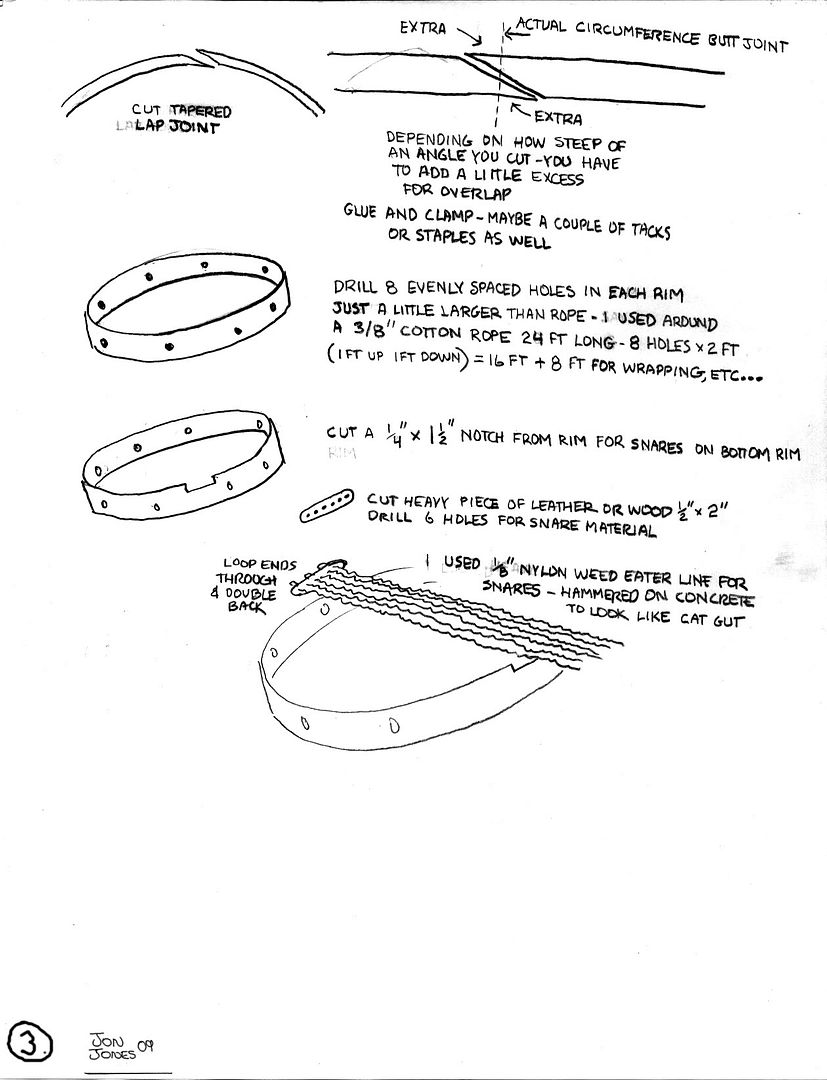 EXTRA
ACTUAL CIRCUMFERENCE BUTT JOINT
CUT TAPERED
LAP JOINT
EXTRA
DEPENDING ON HOW STEEP OF
AN ANGLE YOU CUT - YOU HAVE
TO ADD A LITTLE EXCESS
FOR OVERLAP
GLUE AND CLAMP - MAYBE A COUPLE OF TACKS
OR STAPLES AS WELL
DRILL 8 EVENLY SPACED HOLES IN EACH RIM
JUST A LITTLE LARGER THAN ROPE - I USED AROUND
A 3/8" COTTON ROPE 24 FT LONG - 8 HOLES × 2 FT
(1 FT UP 1 FT DOWN) = 16 FT + 8 FT FOR WRAPPING, ETC...
CUT A 1/4" × 1 1/2" NOTCH FROM RIM FOR SNARES ON BOTTOM RIM
RIM
CUT HEAVY PIECE OF LEATHER OR WOOD 1/2" × 2"
DRILL 6 HOLES FOR SNARE MATERIAL
LOOP ENDS
THROUGH
& DOUBLE
BACK
I USED 1/8" NYLON WEED EATER LINE FOR
SNARES - HAMMERED ON CONCRETE
TO LOOK LIKE CAT GUT
3.
JON
JONES 09